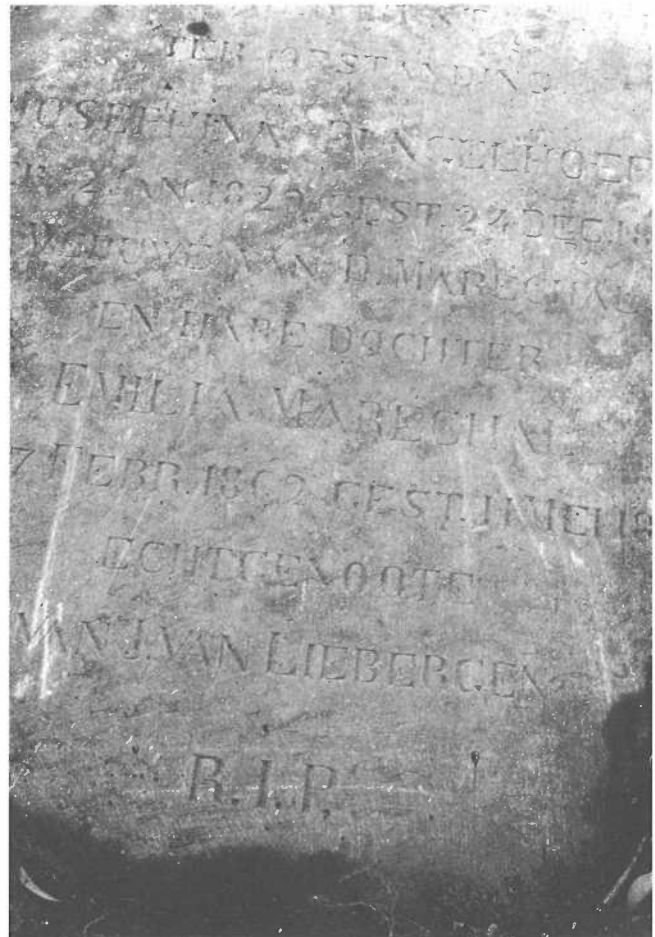 TER
JOSEPHINA
JAN. 1829. GEST. 27 DEC. 18
WEDUWE VAN D. MARECHAL
EN HARE DOCHTER
EMILIA MARECHAL
7 FEBR. 1862 GEST. 11 MEI 18
ECHTGENOOTE
VAN J. VAN LIEBERGEN
R.I.P.